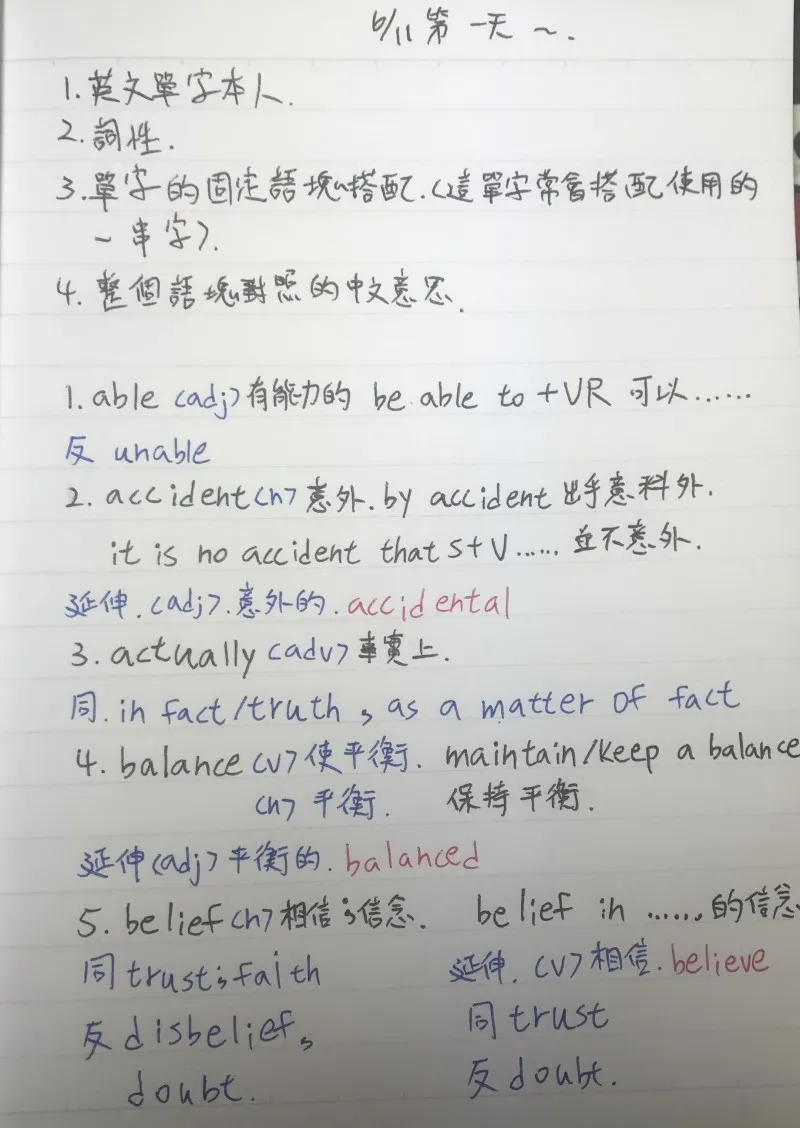 6/11 第一天 ~.
1. 英文單字本人.
2. 詞性.
3. 單字的固定語塊、搭配.(這單字常會搭配使用的
一串字).
4. 整個語塊對照的中文意思.
1. able <adj> 有能力的 be able to +VR 可以......
反 unable
2. accident <n> 意外. by accident 出乎意料外.
it is no accident that S+V...... 並不意外.
延伸. <adj>. 意外的. accidental
3. actually <adv> 事實上.
同. in fact/truth, as a matter of fact
4. balance <v> 使平衡. maintain/keep a balance
<n> 平衡. 保持平衡.
延伸 <adj> 平衡的. balanced
5. belief <n> 相信;信念. belief in ......的信念
同 trust;faith 延伸. <v> 相信. believe
反 disbelief, 同 trust
doubt. 反 doubt.